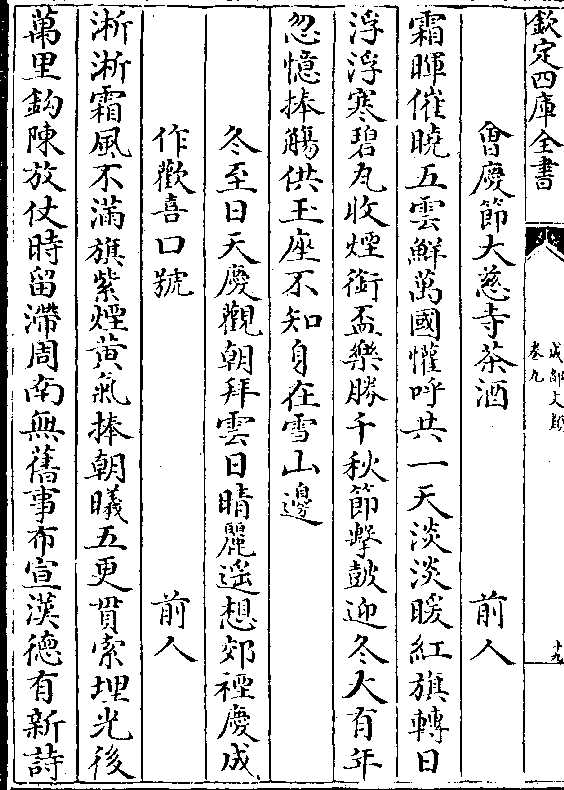 欽定四庫全書
成都文類
卷九
十九
會慶節大慈寺茶酒　前人
霜暉催曉五雲鮮萬國懽呼共一天淡淡暖紅旗轉日
浮浮寒碧瓦收煙銜盃樂勝千秋節擊鼓迎冬大有年
忽憶捧觴供玉座不知身在雪山邊
冬至日天慶觀朝拜雲日晴麗遥想郊禋慶成
作歡喜口號　前人
淅淅霜風不滿旗紫煙黄氣捧朝曦五更貫索埋光後
萬里鈎陳放仗時留滯周南無舊事布宣漢德有新詩